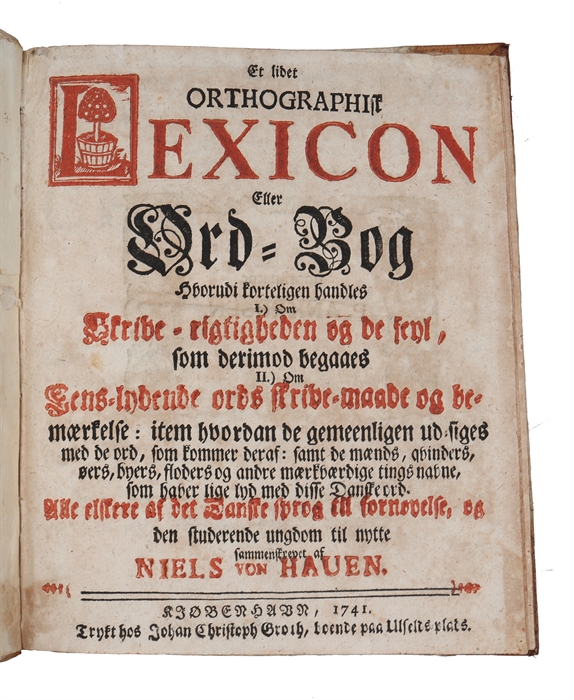 Et lidet
ORTHOGRAPHisk
LEXICON
Eller
Ord-Bog
Hvorudi korteligen handles
I.) Om
Skrive-rigtigheden og de feyl,
som derimod begaaes
II.) Om
Eens-lydende ords skrive-maade og be-
mærkelse: item hvordan de gemeenligen ud-siges
med de ord, som kommer deraf: samt de mænds, qvinders,
øers, byers, floders og andre mærkværdige tings navne,
som haver lige lyd med disse Danske ord.
Alle elskere af det Danske sprog til fornøyelse, og
den studerende ungdom til nytte
sammenskrevet af
NIELS VON HAUEN.
KJØBENHAVN, 1741.
Trykt hos Johan Christoph Groth, boende paa Ulfelds plads.